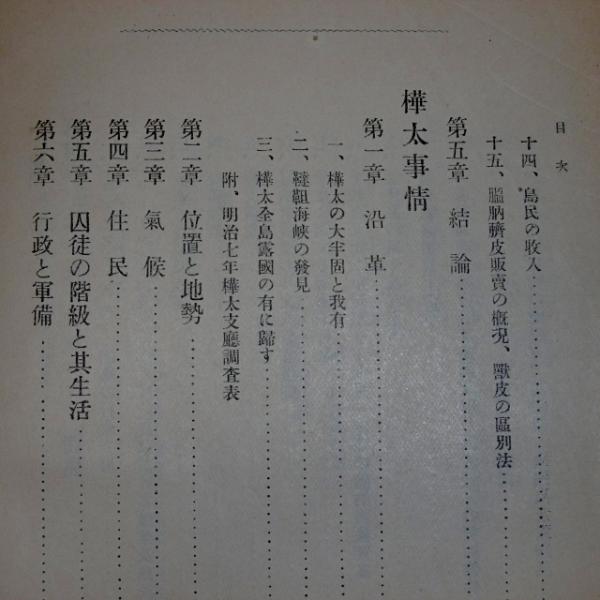 目次
十四、島民の收入
十五、膃肭臍皮販賣の槪況、獸皮の區別法
第五章 結論
樺太事情
第一章 沿革
一、樺太の大半固と我有
二、韃靼海峽の發見
三、樺太全島露國の有に歸す
附、明治七年樺太支廳調査表
第二章 位置と地勢
第三章 氣候
第四章 住民
第五章 囚徒の階級と其生活
第六章 行政と軍備